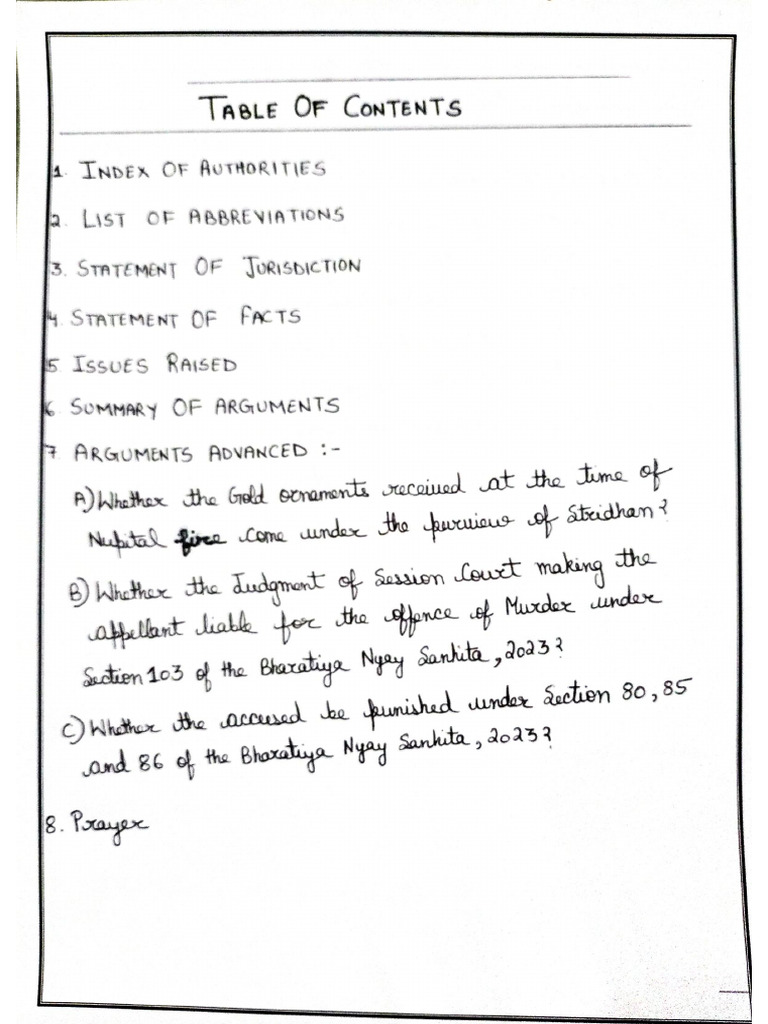 TABLE OF CONTENTS
1. INDEX OF AUTHORITIES
2. LIST OF ABBREVIATIONS
3. STATEMENT OF JURISDICTION
4. STATEMENT OF FACTS
5 ISSUES RAISED
6 SUMMARY OF ARGUMENTS
7. ARGUMENTS ADVANCED :-
A) Whether the Gold ornaments received at the time of
Nupital fire come under the purview of Stridhan?
B) Whether the Judgment of Session Court making the
appellant liable for the offence of Murder under
Section 103 of the Bharatiya Nyay Sanhita, 2023?
C) Whether the accused be punished under Section 80, 85
and 86 of the Bharatiya Nyay Sanhita, 2023?
8. Prayer